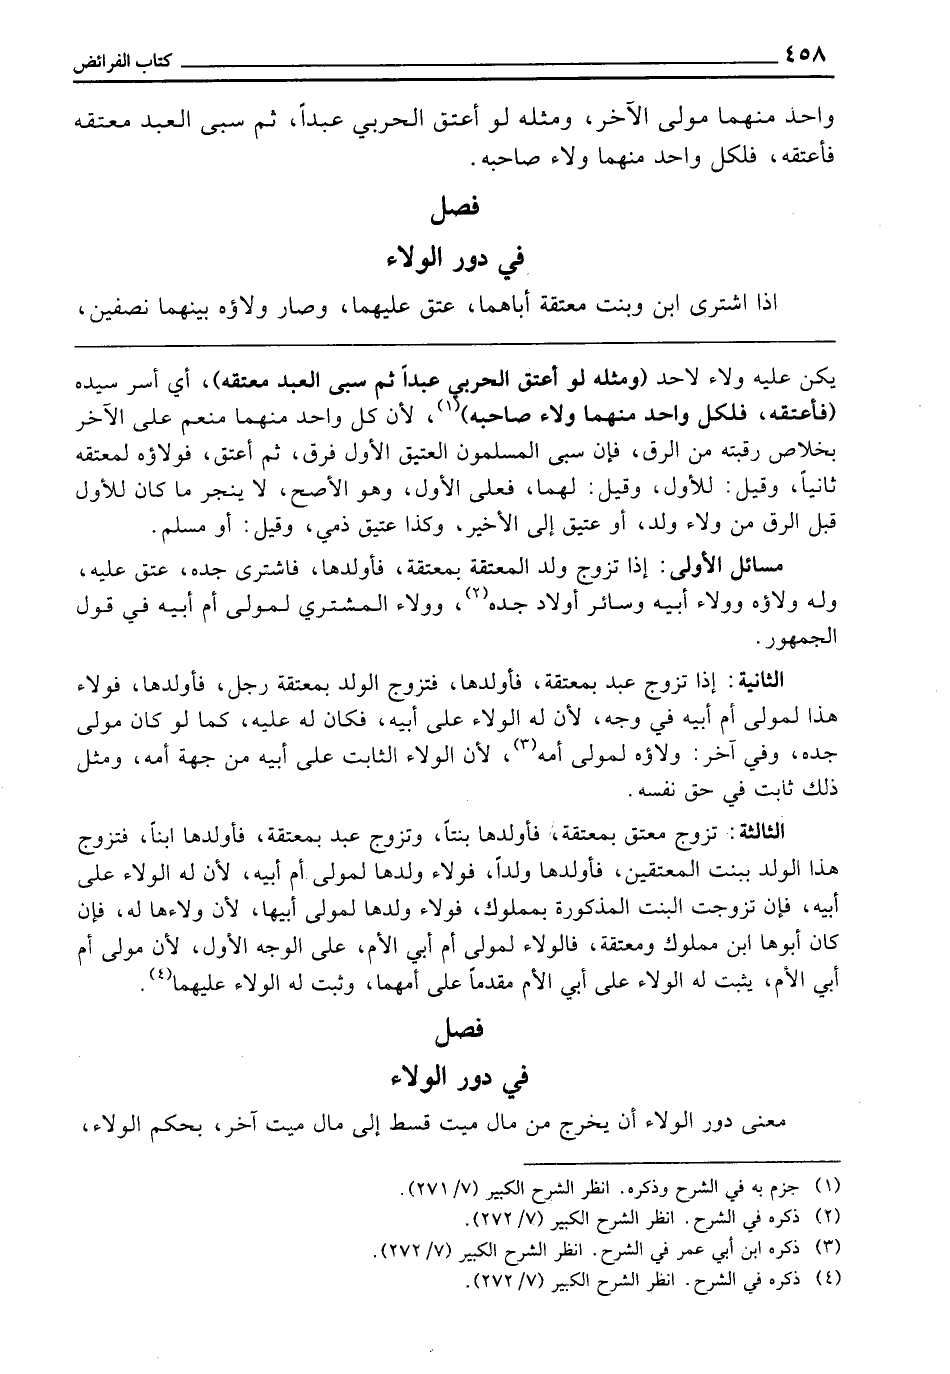 ٤٥٨ كتاب الفرائض
واحذ منهما مولى الآخر، ومثله لو أعتق الحربي عبداً، ثم سبى العبد معتقه
فأعتقه، فلكل واحد منهما ولاء صاحبه.
فصل
في دور الولاء
اذا اشترى ابن وبنت معتقة أباهما، عتق عليهما، وصار ولاؤه بينهما نصفين،
يكن عليه ولاء لاحد (ومثله لو أعتق الحربي عبداً ثم سبى العبد معتقه)، أي أسر سيده
(فأعتقه، فلكل واحد منهما ولاء صاحبه)(١)، لأن كل واحد منهما منعم على الآخر
بخلاص رقبته من الرق، فإن سبى المسلمون العتيق الأول فرق، ثم أعتق، فولاؤه لمعتقه
ثانياً، وقيل: للأول، وقيل: لهما، فعلى الأول، وهو الأصح، لا ينجر ما كان للأول
قبل الرق من ولاء ولد، أو عتيق إلى الأخير، وكذا عتيق ذمي، وقيل: أو مسلم.
مسائل الأولى: إذا تزوج ولد المعتقة بمعتقة، فأولدها، فاشترى جده، عتق عليه،
وله ولاؤه وولاء أبيه وسائر أولاد جده(٢)، وولاء المشتري لمولى أم أبيه في قول
الجمهور.
الثانية: إذا تزوج عبد بمعتقة، فأولدها، فتزوج الولد بمعتقة رجل، فأولدها، فولاء
هذا لمولى أم أبيه في وجه، لأن له الولاء على أبيه، فكان له عليه، كما لو كان مولى
جده، وفي آخر: ولاؤه لمولى أمه(٣)، لأن الولاء الثابت على أبيه من جهة أمه، ومثل
ذلك ثابت في حق نفسه.
الثالثة: تزوج معتق بمعتقة، فأولدها بنتاً، وتزوج عبد بمعتقة، فأولدها ابناً، فتزوج
هذا الولد ببنت المعتقين، فأولدها ولداً، فولاء ولدها لمولى أم أبيه، لأن له الولاء على
أبيه، فإن تزوجت البنت المذكورة بمملوك، فولاء ولدها لمولى أبيها، لأن ولاءها له، فإن
كان أبوها ابن مملوك ومعتقة، فالولاء لمولى أم أبي الأم، على الوجه الأول، لأن مولى أم
أبي الأم، يثبت له الولاء على أبي الأم مقدماً على أمهما، وثبت له الولاء عليهما(٤).
فصل
في دور الولاء
معنى دور الولاء أن يخرج من مال ميت قسط إلى مال ميت آخر، بحكم الولاء،
(١) جزم به في الشرح وذكره. انظر الشرح الكبير (٢٧١/٧).
(٢) ذكره في الشرح. انظر الشرح الكبير (٢٧٢/٧).
(٣) ذكره ابن أبي عمر في الشرح. انظر الشرح الكبير (٢٧٢/٧).
(٤) ذكره في الشرح. انظر الشرح الكبير (٢٧٢/٧).